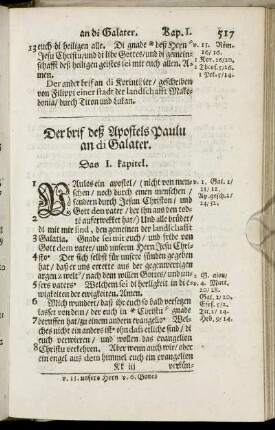 an di Galater. Kap. I. 517
13 euch di heiligen alle. Di gnade * deß Heyn
Jesu Christu/ und di libe Gottes/ und di gemein-
schafft deß heiligen geistes sei mit euch allen. A-
men.
Der ander brif an di Korintiier/ geschriben
von Filippi einer stadt der landschafft Make-
donia/ durch Titon und Lukan.
v. 13. Röm.
16/16.
1 Kor. 16/20.
Thes. 5/26.
1 Pet. 5/14.
Der brif deß Apostels Paulu
an di Galater.
Das I. kapitel.
1 PAulos ein apostel/ (nicht von men-
schen/ noch durch einen menschen/
sondern durch Jesun Christon/ und
Gott dem vater/ der ihn aus den todt-
2 ten auferweckket hat/) Und alle brüder/
di mit mir sind, den gemeinen der landschafft
3 Galatia. Gnade sei mit euch/ und fride von
Gott dem vater/ und unserm Heyn Jesu Chri-
4 sto* Der sich selbst für unsere sünden gegeben
hat/ daß er uns errette aus der gegenwertigen
argen welt/ nach dem willen Gottes/ und un-
5 sers vaters* Welchem sei di herligkeit in di e-
wigkeiten der ewigkeiten. Amen.
6 Mich wundert/ daß ihr so bald versetzen
lasset von dem/ der euch in * Christu * gnade
7 beruffen hat/ zu einem andern evangelio* Wel-
ches nicht ein anders ist* ohn daß etliche sind/ di
euch verwirren/ und wollen das evangelion
8 Christu verkehren. Aber wenn auch wir/ oder
ein engel aus dem himmel euch ein evangelion
v. 1. Gal. 1/
11/12.
Ap. gesch. 2/
24/32.
4. Matt.
20/28.
Gal. 2/20.
Efes. 5/2.
Tit. 2/14.
Heb. 9/14.
Kk iii verkün-
v. 13. unsers Heyn v. 6. Gottes